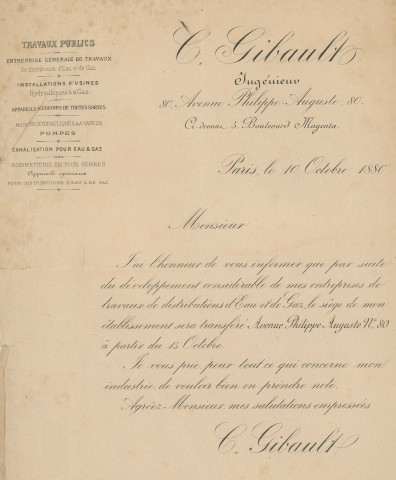 TRAVAUX PUBLICS
ENTREPRISE GÉNÉRALE DE TRAVAUX
de distributions d'Eau et de Gaz
INSTALLATIONS D'USINES
Hydrauliques & à Gaz
APPAREILS ÉLÉVATOIRES DE TOUTES SORTES
MOTEURS HYDRAULIQUES & À VAPEUR
POMPES
CANALISATION POUR EAU & GAZ
ROBINETTERIE EN TOUS GENRES
Appareils spéciaux
POUR DISTRIBUTIONS D'EAU & DE GAZ
C. Gibault
Ingénieur
80, Avenue Philippe-Auguste, 80.
Ci-devant, 5, Boulevard Magenta.
Paris, le 10 Octobre 1880
Monsieur
J'ai l'honneur de vous informer que par suite
du développement considérable de mes entreprises de
travaux de distributions d'Eau et de Gaz, le siège de mon
établissement sera transféré Avenue Philippe Auguste N° 80
à partir du 15 Octobre.
Je vous prie pour tout ce qui concerne mon
industrie, de vouloir bien en prendre note.
Agréez Monsieur mes salutations empressées
C. Gibault